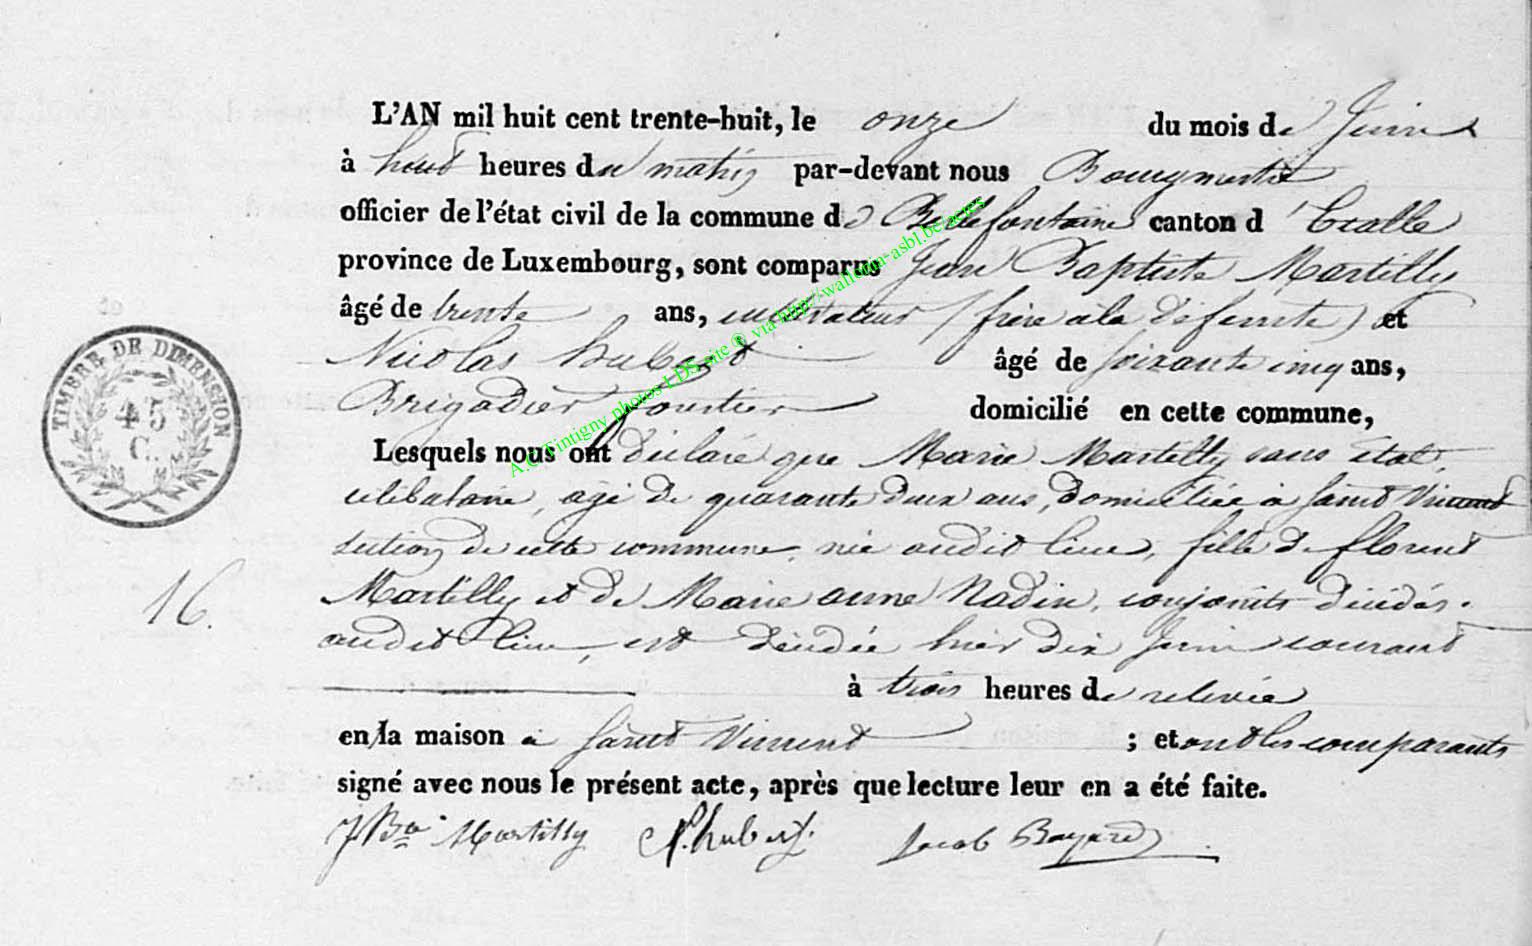 L'AN mil huit cent trente-huit, le onze du mois de Juin
à huit heures du matin par-devant nous Bourgmestre
officier de l'état civil de la commune de Bellefontaine canton d'Etalle
province de Luxembourg, sont comparus Jean Baptiste Martilly
âgé de trente ans, cultivateur (frère à la défunte) et
Nicolas hubert âgé de soixante cinq ans,
Brigadier forestier domicilié en cette commune,
Lesquels nous ont déclaré que Marie Martilly sans état,
célibataire, agé de quarante deux ans, domiciliée à Saint Vincent
section de cette commune, née audit lieu, fille de florent
Martilly et de Marie anne Nadin, conjoints décédés
audit lieu, est décédée hier dix Juin courant
à trois heures de relevée
en la maison à Saint Vincent ; et ont les comparants
signé avec nous le présent acte, après que lecture leur en a été faite.
JBte Martilly N. hubert Jacob Bayard
TIMBRE DE DIMENSION
45
C.
16.
A.C. Tintigny photos LDS site ® via http://walloria-asbl.be/actes